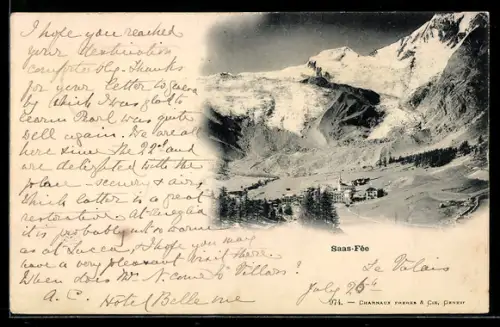 I hope you reached
your destination
comfortably. Thanks
for your letter to
by which I was glad to
learn Pearl was quite
well again. We are all
here since the 22nd and
are delighted with the
place - scenery & air,
which latter is a great
restorative. At
it is probably not so warm
as at Lucca, & I hope you may
have a very pleasant visit there.
When does Mr N. come to Villars?
A. C. Hotel Bellevue
Saas-Fée
Le Valais
July 25th
974. — CHARNAUX FRÈRES & Cie, GENÈVE